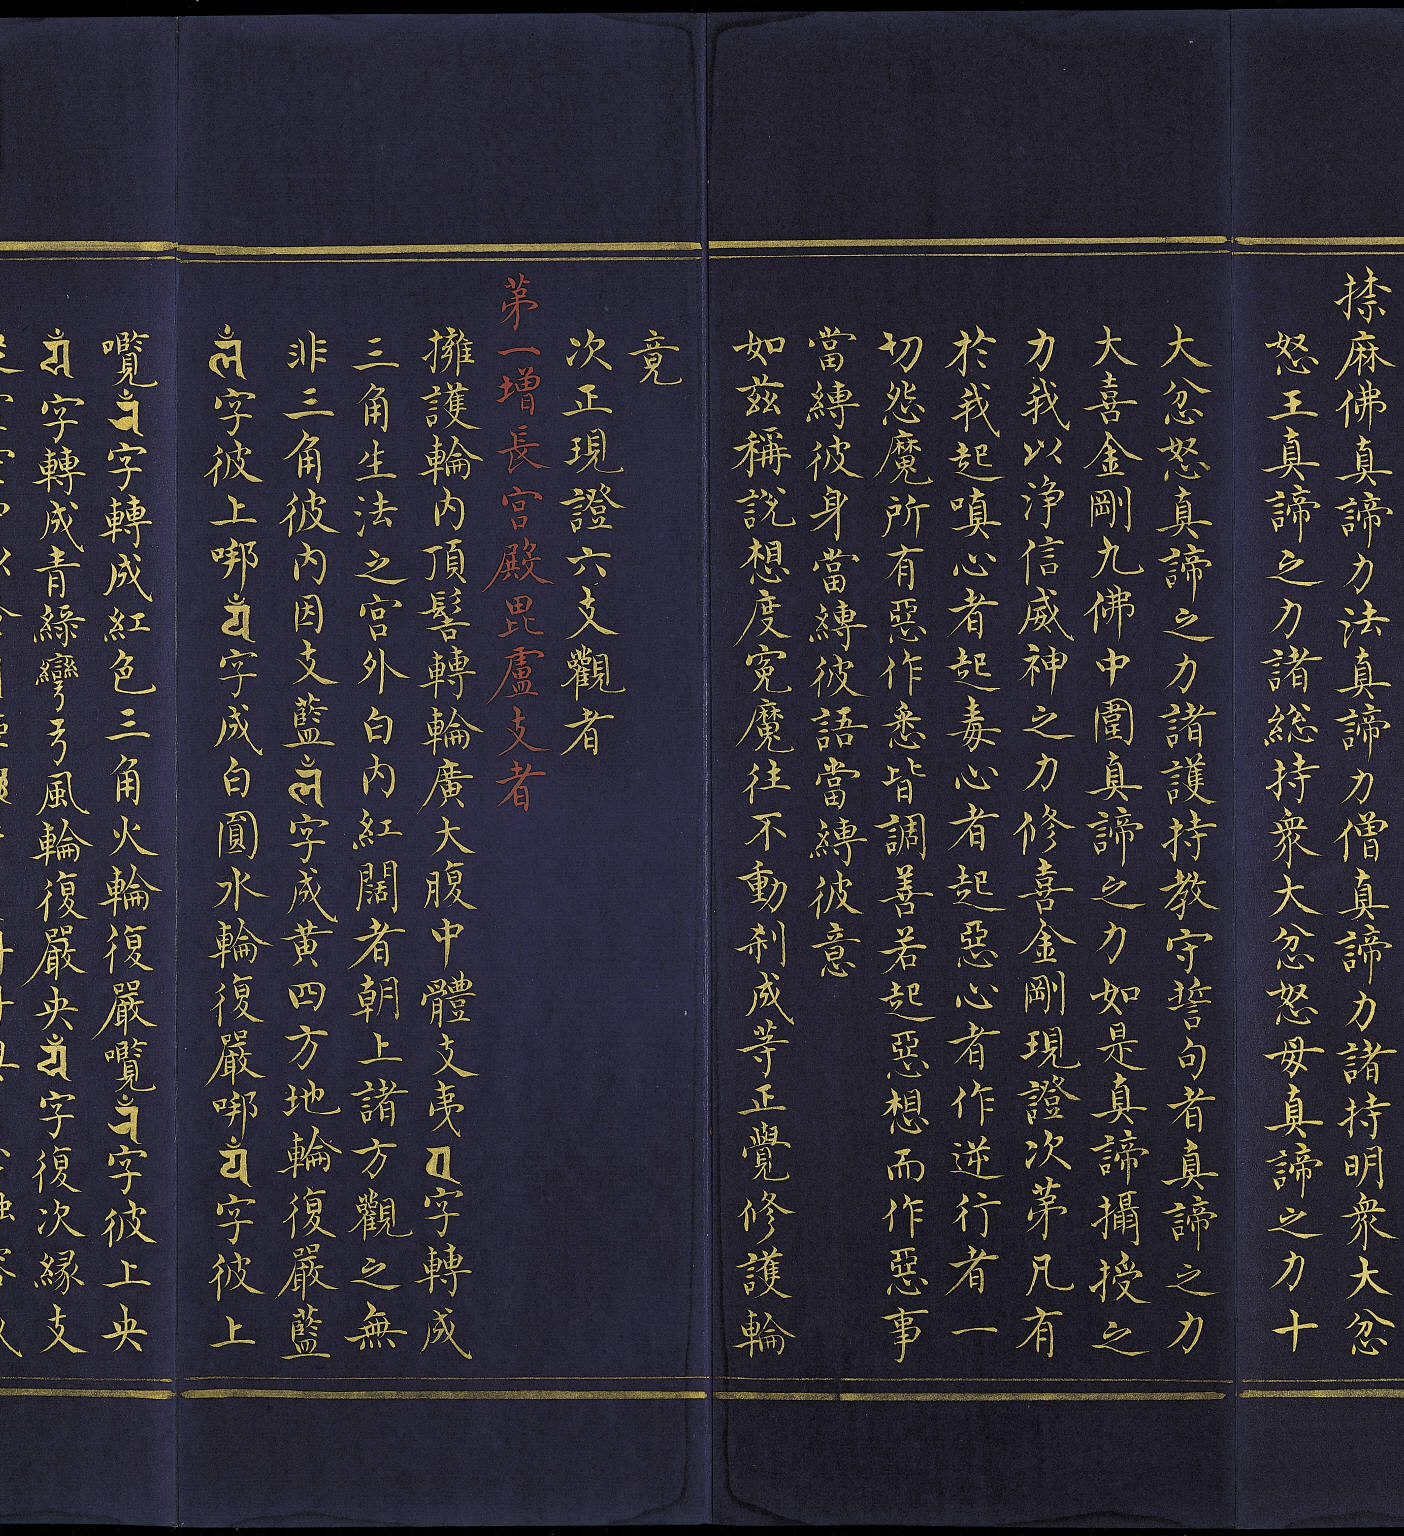 捺麻佛真諦力法真諦力僧真諦力諸持明衆大忿
怒王真諦之力諸総持衆大忿怒母真諦之力十
大忿怒真諦之力諸護持教守誓句者真諦之力
大喜金剛九佛中圍真諦之力如是真諦攝授之
力我以浄信威神之力修喜金剛現證次第凡有
於我起嗔心者起毒心者起惡心者作逆行者一
切怨魔所有惡作悉皆調善若起惡想而作惡事
當縛彼身當縛彼語當縛彼意
如兹稱說想度寃魔往不動刹成等正覺修護輪
竟
次正現證六支觀者
第一增長宫殿毘盧支者
擁護輪内頂髻轉輪廣大腹中體支夷字轉成
三角生法之宫外白内紅闊者朝上諸方觀之無
非三角彼内因支藍字成黄四方地輪復嚴藍
字彼上㖿字成白圓水輪復嚴㖿字彼上
囕字轉成紅色三角火輪復嚴囕字彼上央
字轉成青緑彎弓風輪復嚴央字復次縁支